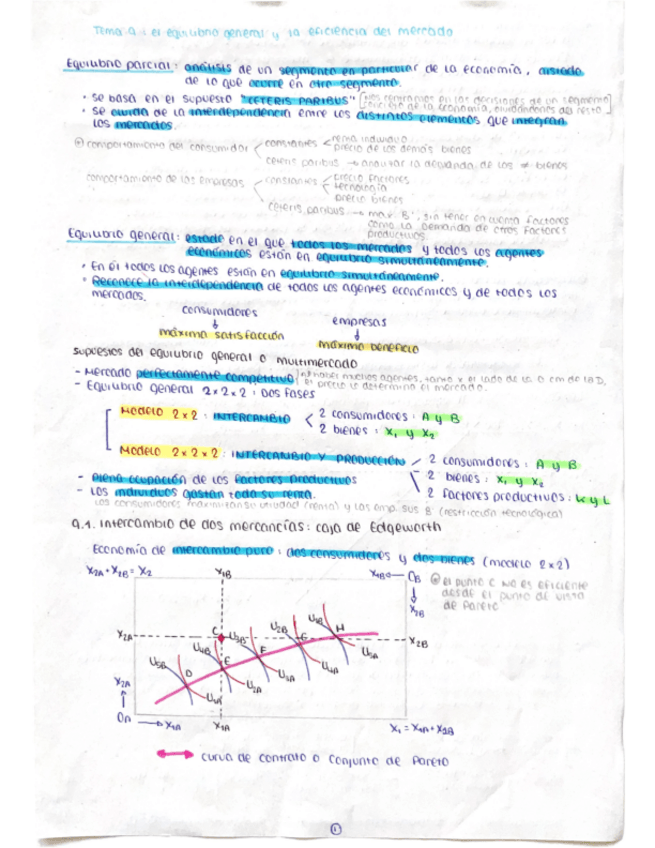 Tema 9: el equilibrio general y la eficiencia del mercado
Equilibrio parcial: análisis de un segmento en particular de la economía, aislada
de lo que ocurre en otro segmento.
· se basa en el supuesto "CETERIS PARIBUS" [nos centramos en las decisiones de un segmento
de la economía, olvidándonos del resto]
· se olvida de la interdependencia entre los distintos elementos que integran
los mercados.
comportamiento del consumidor constantes renta individuo
precio de los demás bienes
ceteris paribus → analizar la demanda de los ≠ bienes
comportamiento de las empresas constantes precio factores
tecnología
precio bienes
ceteris paribus → max B', sin tener en cuenta factores
como la demanda de otros factores
productivos
Equilibrio general: estado en el que todos los mercados y todos los agentes
económicos están en equilibrio simultáneamente.
· En él todos los agentes están en equilibrio simultáneamente.
· Reconoce la interdependencia de todos los agentes económicos y de todos los
mercados.
consumidores empresas
↓ ↓
máxima satisfacción máximo beneficio
supuestos del equilibrio general o multimercado
- Mercado perfectamente competitivo haber muchos agentes, tanto x el lado de la O cm de la D,
el precio lo determina el mercado.
- Equilibrio general 2x2x2: Dos fases
MODELO 2x2: INTERCAMBIO 2 consumidores: A y B
2 bienes: X₁ y X₂
MODELO 2x2x2: INTERCAMBIO Y PRODUCCIÓN 2 consumidores: A y B
2 bienes: X₁ y X₂
2 factores productivos: K y L
- Plena ocupación de los factores productivos
- Los individuos gastan toda su renta.
Los consumidores maximizan su utilidad (renta) y las emp. sus B' (restricción tecnológica)
9.1. Intercambio de dos mercancías: caja de Edgeworth
Economía de intercambio puro: dos consumidores y dos bienes (modelo 2x2)
X2A + X2B = X2 X1B X1B ← OB
el punto C no es eficiente
desde el punto de vista
de Pareto
↓
X2B
X2A C U3B U2B U1B H X2B
U5B U4B D E F G
U1A U2A U3A U4A U5A
X2A
↑
OA → X1A X1A X1 = X1A + X1B
↔ curva de contrato o conjunto de Pareto
1